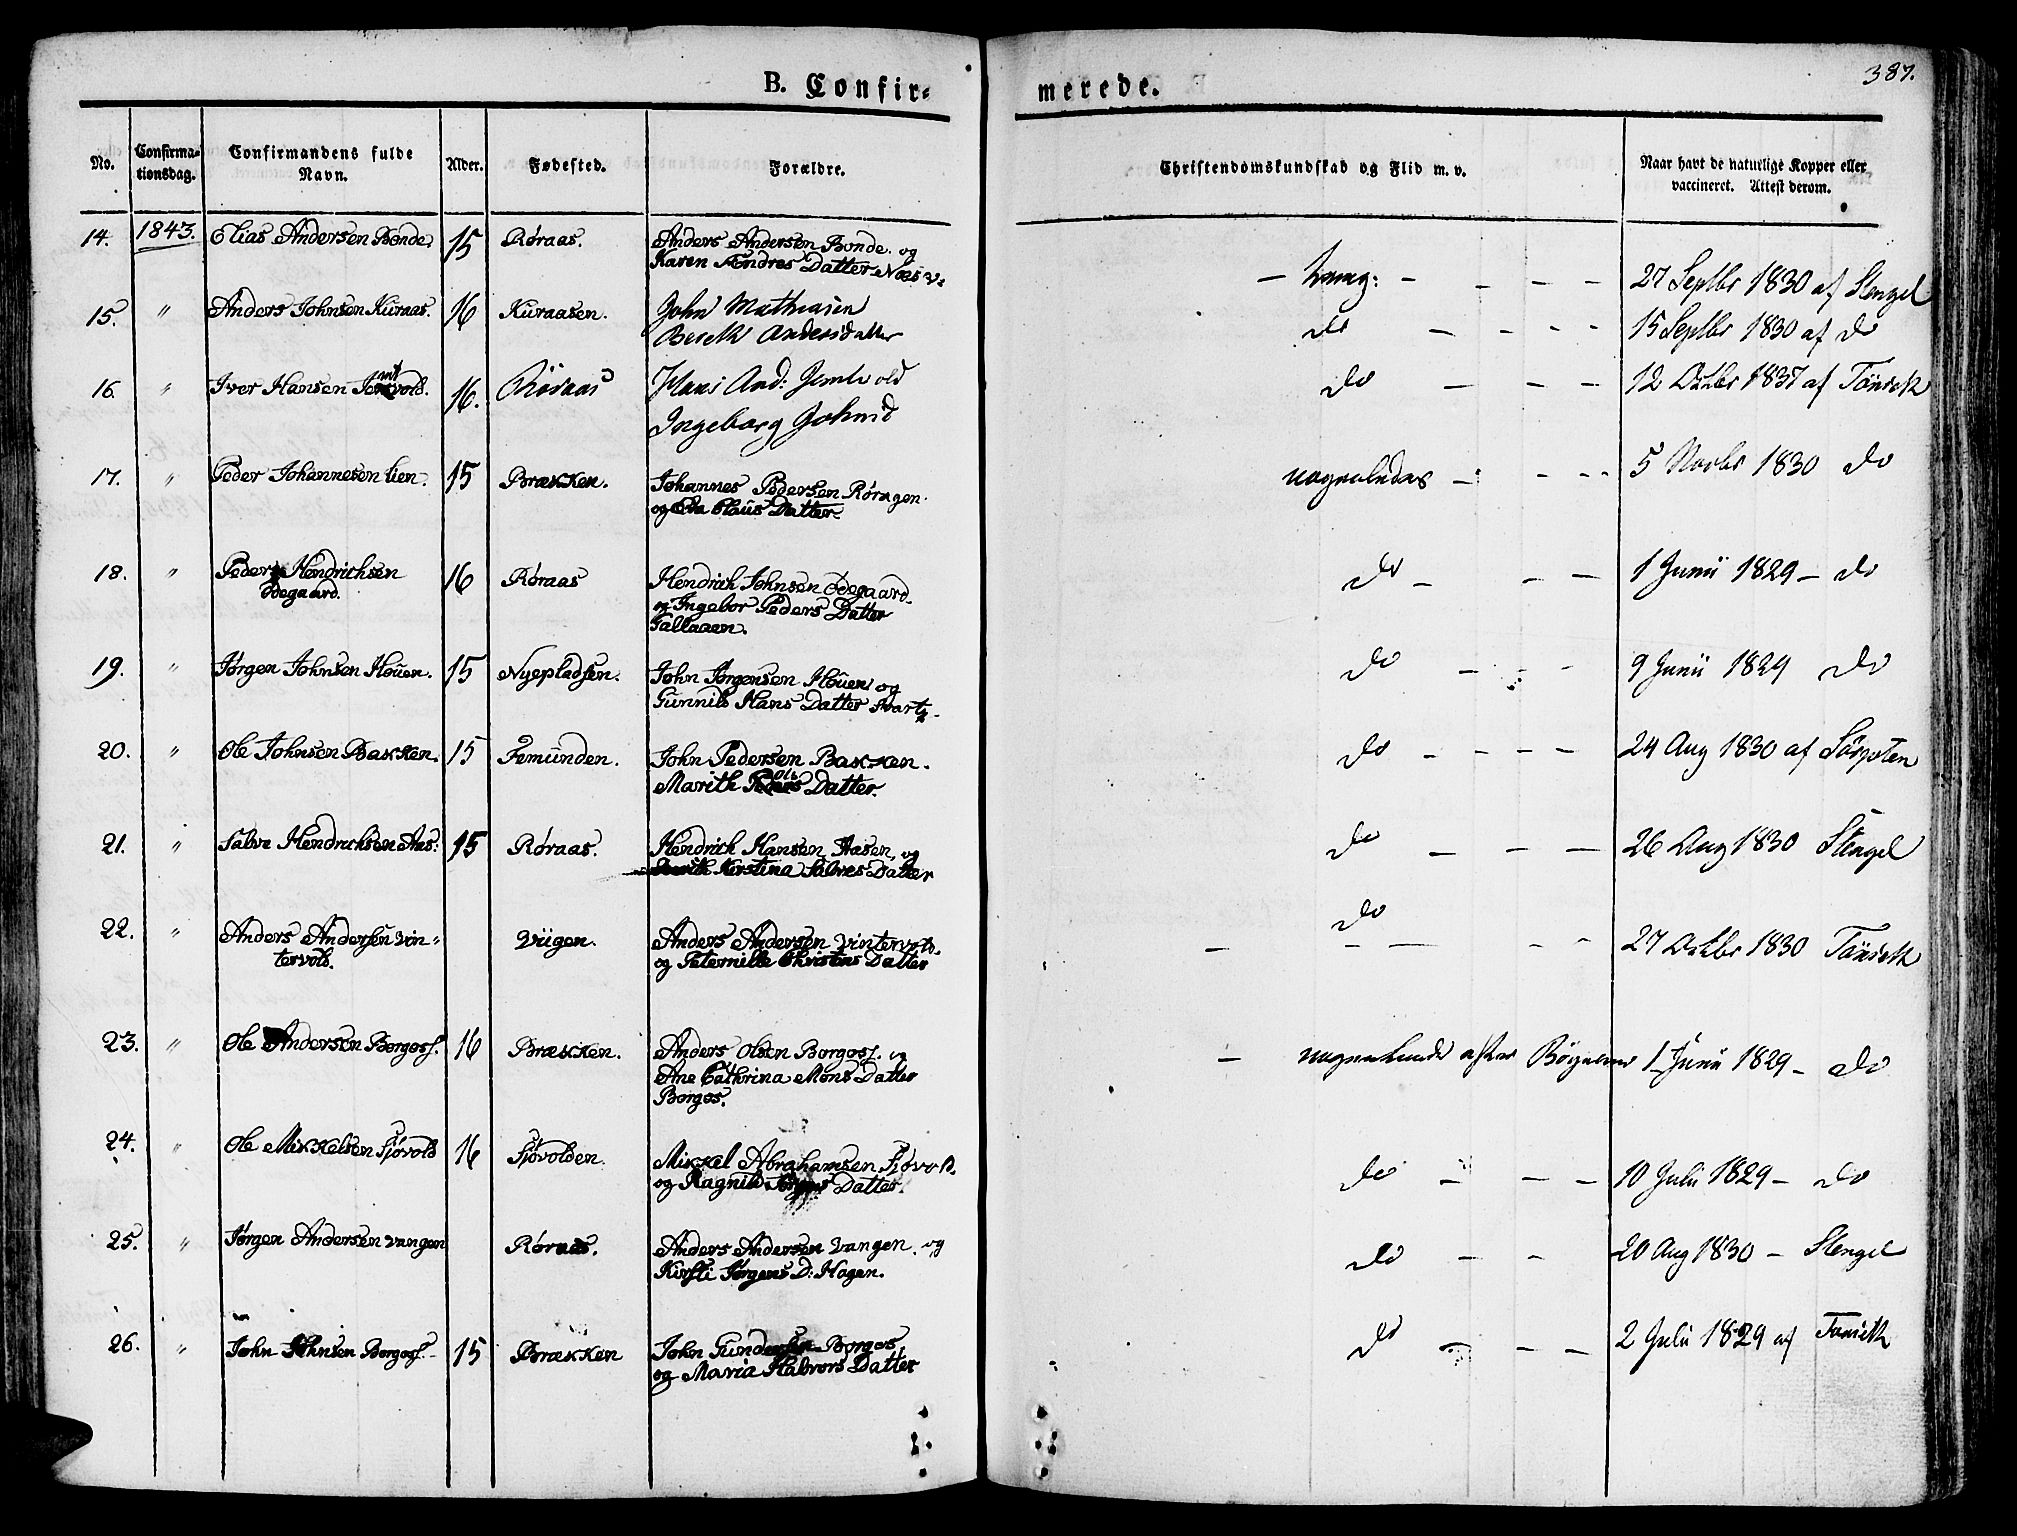 387.
B. Confirmerede.
No. Confirmationsdag. Confirmandens fulde Navn. Alder. Fødested. Forældre. Christendomskundskab og Flid m. v. Naar havt de naturlige Kopper eller vaccineret. Attest derom.
14. 1843. Elias Andersen Bonde. 15 Røraas. Anders Andersen Bonde. og
Karen Endres Datter Næs v. — — — — 27 Septbr 1830 af Stengel
15. " Anders Johnsen Kuraas. 16 Kuraasen. John Mathiasen
Bereth Andersdatter do — — — — 15 Septbr 1830 af do
16. " Iver Hansen Jemtvold. 16. Røraas Hans And: Jemtvold
Ingeborg Johnsd do — — — 12 Octbr 1837 af Tönseth
17. " Peder Johannesen Lien. 15 Brækken. Johannes Pedersen Rørøgen.
og Eva Claus Datter. — — — 5 Novbr 1830 do
18. " Peder Hendrichsen
Ødegaard. 16 Røraas Hendrich Johnsen Ødegaard.
og Ingebor Peders Datter
Gallaaen. do — — — 1 Junii 1829 — do
19. " Jørgen Johnsen Houen. 15 Nyepladsen. John Jørgensen Houen og
Gunnild Hans Datter do — — — 9 Junii 1829 do
20. " Ole Johnsen Bakken. 15 Femunden. John Pedersen Bakken.
Marith Ols Datter. do — — — — 24 Aug 1830 af
21. " Salve Hendrichsen Aas: 15 Røraas. Hendrich Hansen Aasen, og
Kerstina Salves Datter do — — — 26 Aug 1830 Stengel
22. " Anders Andersen Vin-
tervold. Viigen. Anders Andersen Vintervold.
og Peternille Christens Datter do
— — — — — 27 Octbr 1830 Tönseth
23. " Ole Andersen Borgos. 16 Brækken. Anders Olsen Borgos. og
Ane Cathrina Mons Datter
Borgos. — 1 Junii 1829 — do
24. " Ole Mikkelsen Sjøvold 16 Sjøvolden. Mikkel Abrahamsen Sjøvold.
og Ragnild Datter do — — — 10 Julii 1829 — do
25. " Jørgen Andersen Vangen Røraas. Anders Andersen Vangen. og
Kirsti Jørgens D: Hagen. do — — 20 Aug 1830 — Stengel
26. " John Johnsen Borgos. 15 Brækken John Gundersen Borgos
og Maria Halvors Datter do — — — 2 Julii 1829 af Tönseth